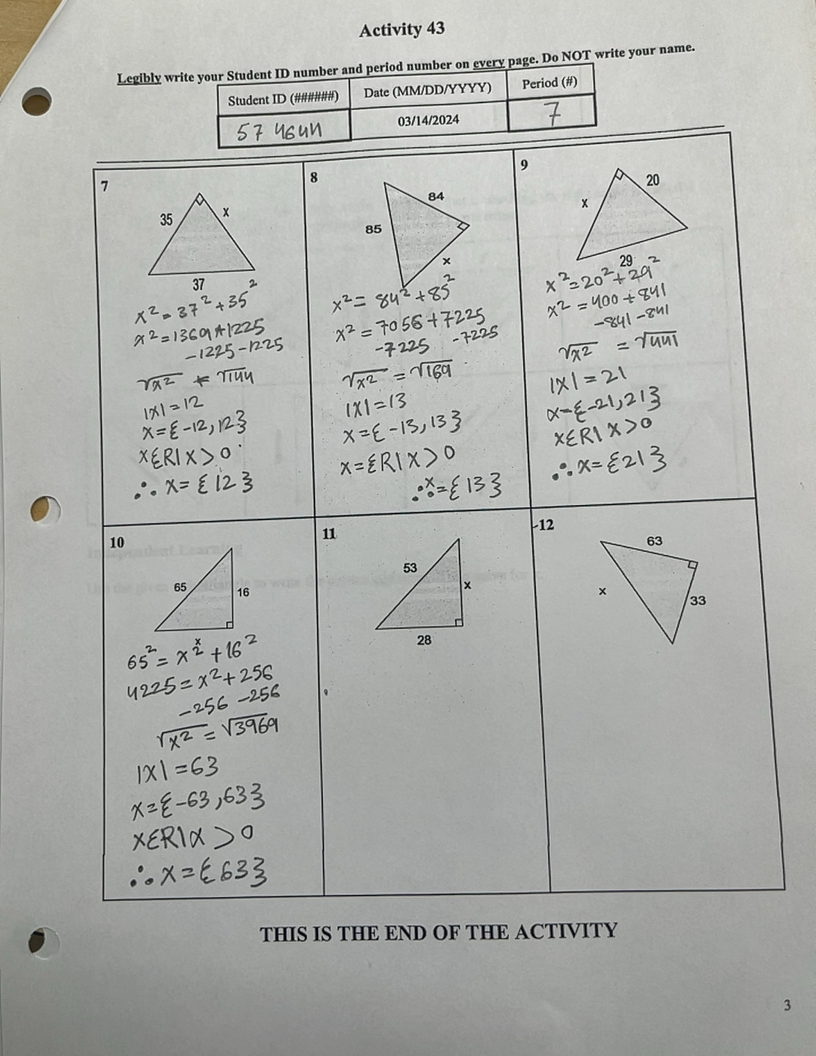 Activity 43
Legibly write your Student ID number and period number on every page. Do NOT write your name.
Student ID (######)
Date (MM/DD/YYYY)
Period (#)
57 4644
03/14/2024
7
7
35
x
37
x² = 37² + 35²
x² = 1369 + 1225
-1225 -1225
√x² = √144
|x| = 12
x = {-12, 12}
xεR|x > 0
∴ x = {12}
8
84
85
x
x² = 84² + 85²
x² = 7056 + 7225
-7225 -7225
√x² = √169
|x| = 13
x = {-13, 13}
x = {R|x > 0
∴ x = {13}
9
20
x
29
x² = 20² + 29²
x² = 400 + 841
-841 -841
√x² = √441
|x| = 21
x = {-21, 21}
xεR|x > 0
∴ x = {21}
10
65
16
x
65² = x² + 16²
4225 = x² + 256
-256 -256
√x² = √3969
|x| = 63
x = {-63, 63}
xεR|x > 0
∴ x = {63}
11
53
x
28
12
63
x
33
THIS IS THE END OF THE ACTIVITY
3